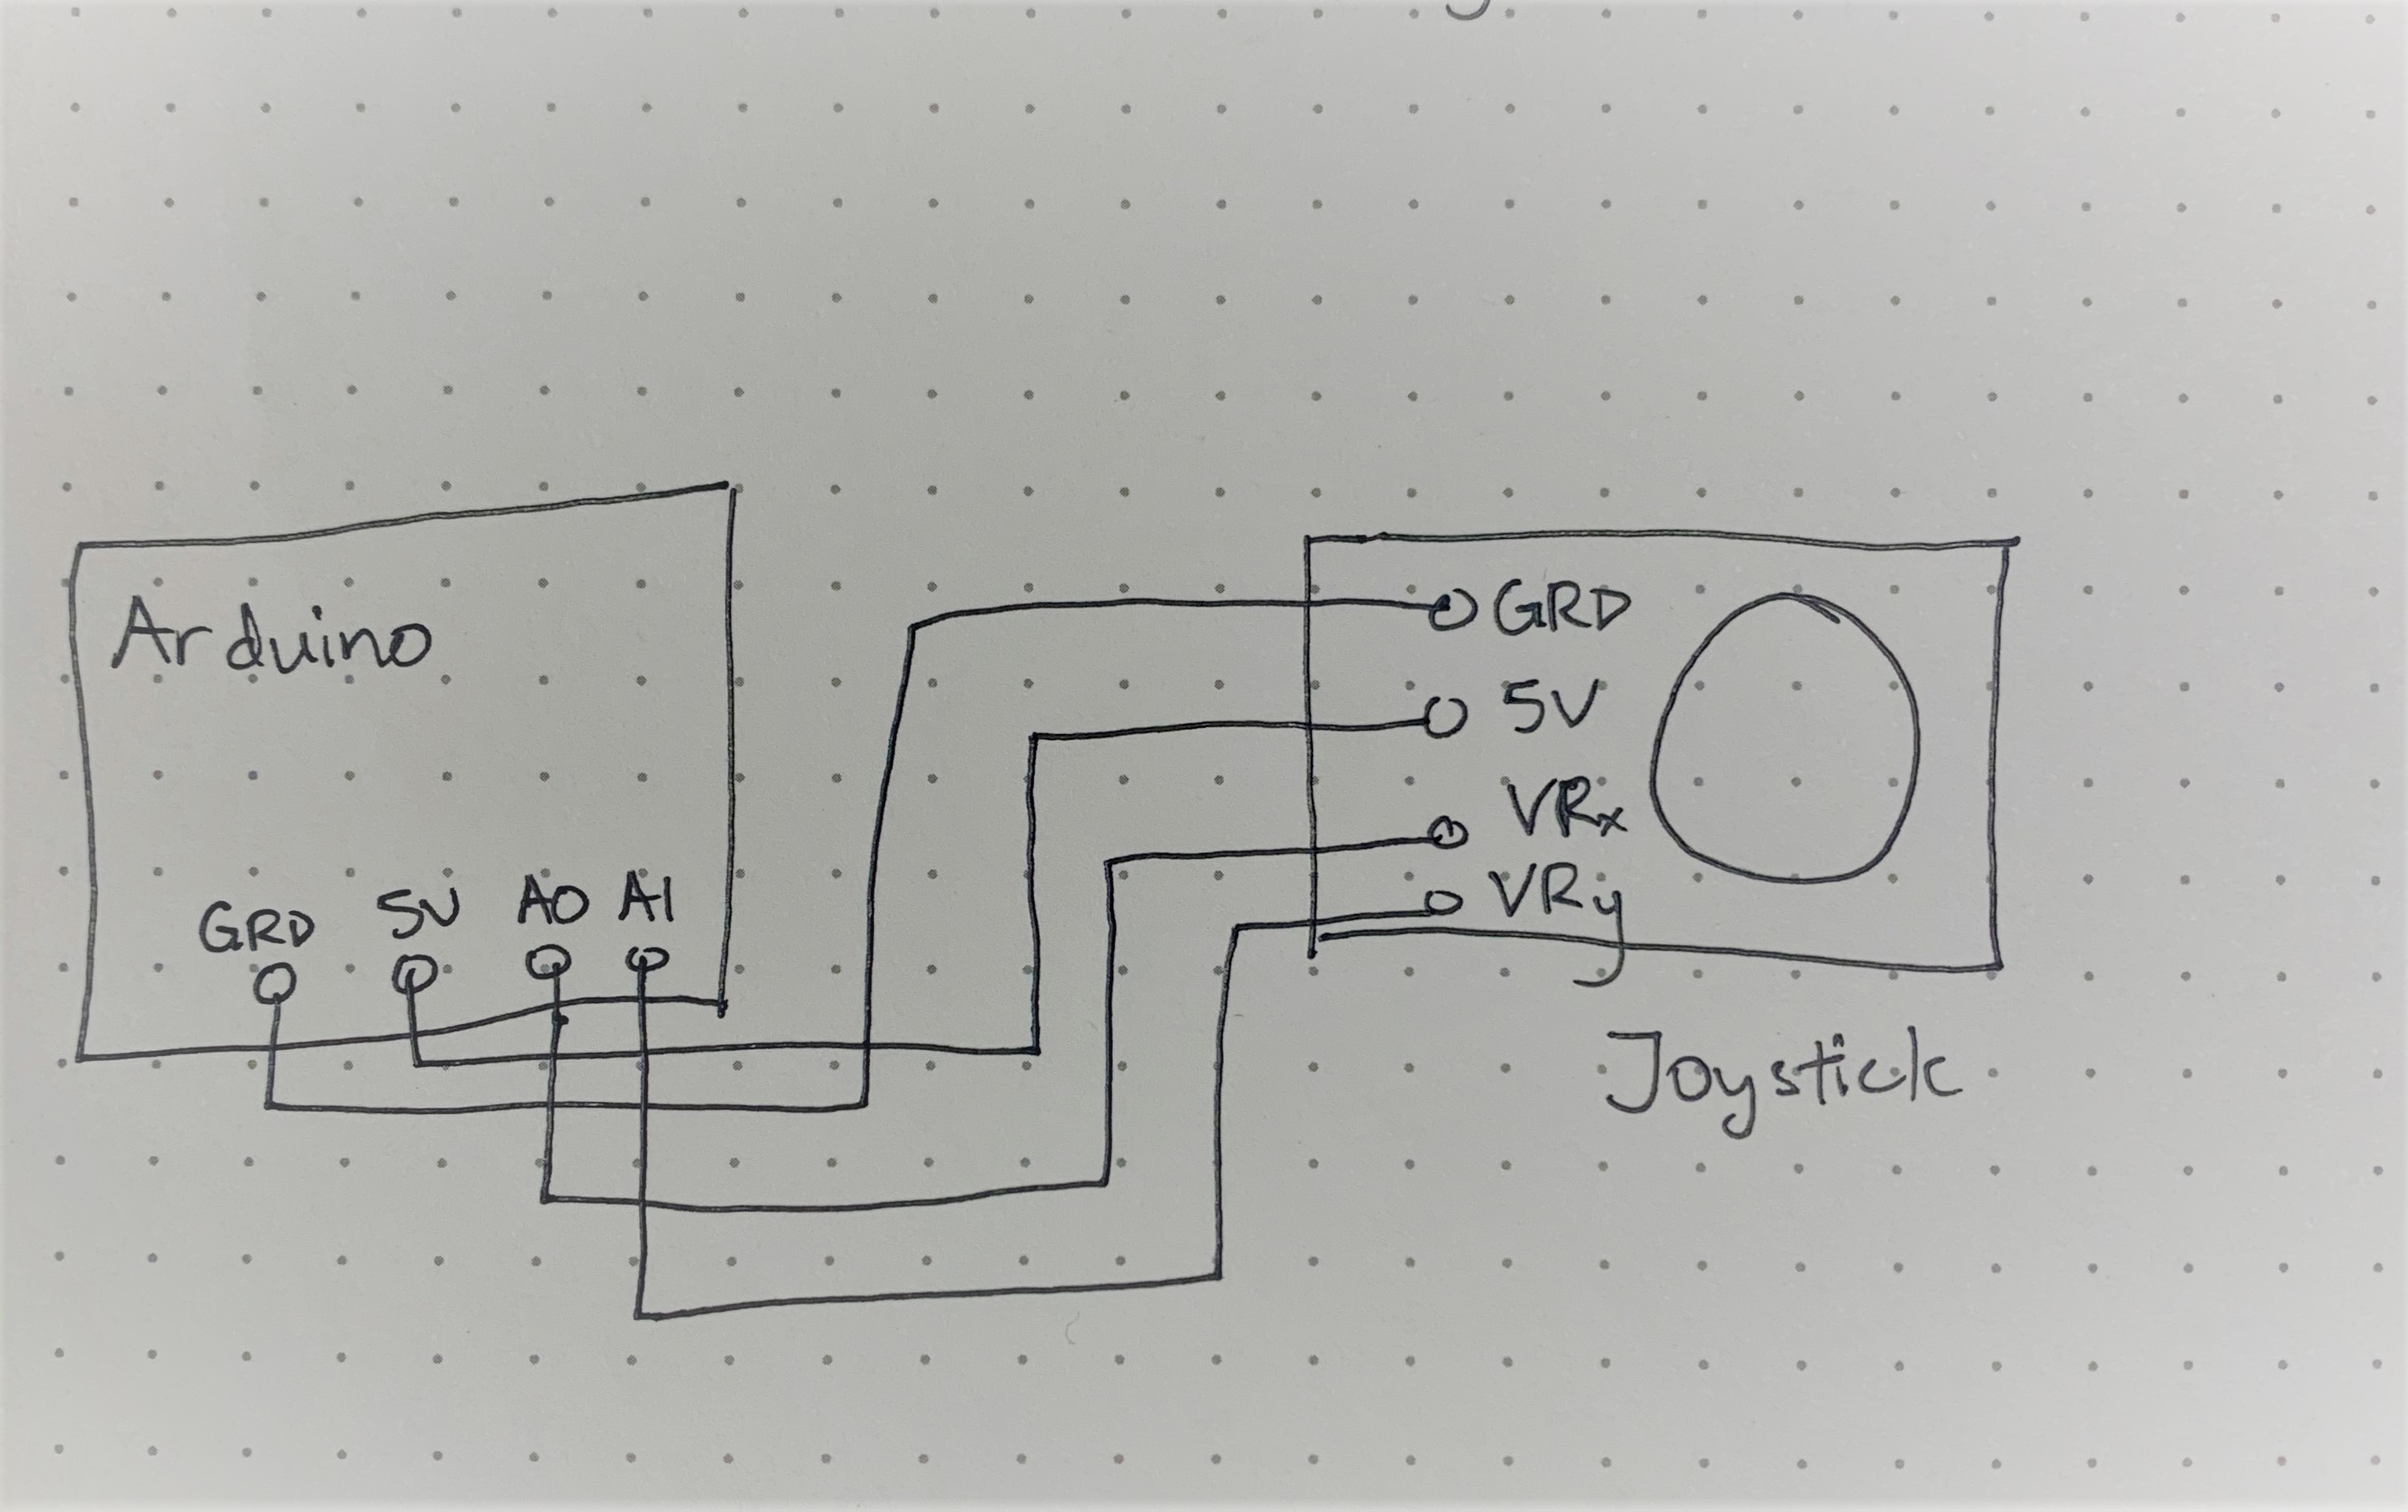 Arduino
GRD 5V A0 A1
GRD
5V
VRx
VRy
Joystick